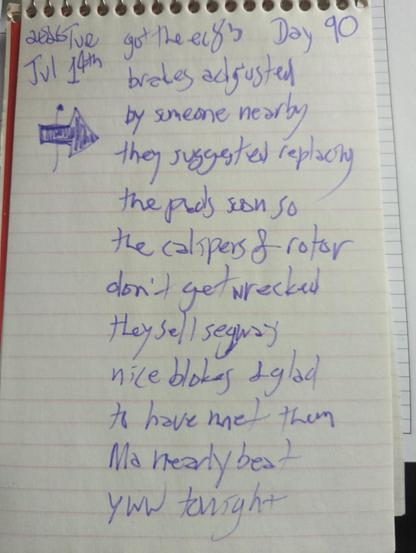 2026 Tue got the ec8's Day 90
Jul 14th brakes adjusted
by someone nearby
they suggested replacing
the pads soon so
the calipers & rotor
don't get wrecked
they sell segway
nice blokes & glad
to have met them
Ma nearly beat
YWW tonight